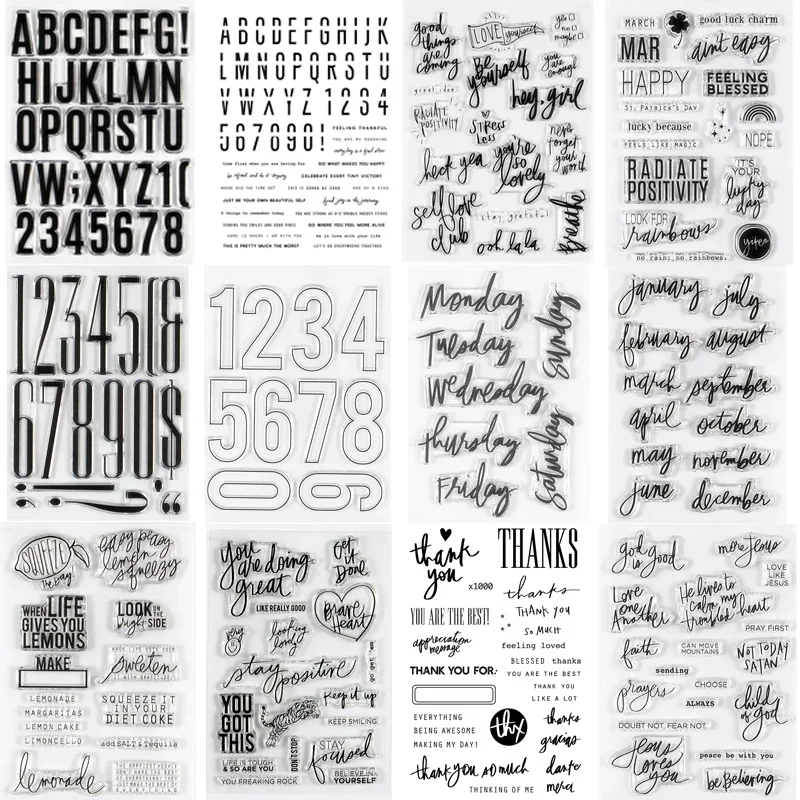 ABCDEFG!
HIJKLMN
OPQRSTU
VW;XYZ1(
2345678
ABCDEFGHIJK
LMNOPQRSTU
VWXYZ1234
567890!
FEELING THANKFUL
YOU ARE MY SUNSHINE
everyday is a fresh start
time flies when you are having fun
DO WHAT MAKES YOU HAPPY
CELEBRATE EVERY TINY VICTORY
THIS IS GONNA BE GOOD
ONE OF A KIND
JUST BE YOUR OWN BEAUTIFUL SELF
find joy in the journey
things to remember today
SENDING YOU SMILES AND GOOD VIBES
DO WHERE YOU FEEL MORE ALIVE
HOME IS WHERE I AM WITH YOU
be in love with your life
THIS IS PRETTY MUCH THE WORST
LET'S GO EVERYWHERE TOGETHER
good
things
are
coming
LOVE yourself
yes
no
maybe
be
yourself
you
are
enough
great idea
hey, girl
RADIATE
POSITIVITY
stress
less
never
forget
your
worth
heck yea
you're
so
lovely
self love
club
stay grateful
ooh la la
breathe
MARCH
good luck charm
MAR
ain't easy
HAPPY
FEELING
BLESSED
ST. PATRICK'S DAY
lucky because
NOPE
FEELS LIKE MAGIC
RADIATE
POSITIVITY
IT'S
YOUR
lucky
day
LOOK FOR
rainbows
no rain, no rainbows.
12345(&
67890$
1234
5678
0 9
Monday
Tuesday
Wednesday
Thursday
Friday
Saturday
Sunday
january
july
february
august
march
september
april
october
may
november
june
december
SQUEEZE
the day
easy peasy
lemon
squeezy
WHEN LIFE
GIVES YOU
LEMONS
LOOK ON THE
bright SIDE
MAKE
WHEN LIFE GETS SOUR
sweeten
IT WITH GRATITUDE
LEMONADE
MARGARITAS
LEMON CAKE
LIMONCELLO
SQUEEZE IT
IN YOUR
DIET COKE
add SALT & Tequila
lemonade
THE HAPPIEST PEOPLE
DON'T HAVE THE BEST
OF EVERYTHING
You
are doing
great
get
it
Done
LIKE REALLY GOOD
Brave
Heart
very
looking
lovely
stay positive
go get 'em
YOU
GOT
THIS
keep it up
KEEP SMILING
DON'T STOP
STAY
focused
LIFE IS TOUGH
& SO ARE YOU
YOU FREAKING ROCK
BELIEVE IN
YOURSELF
thank
you
x1000
THANKS
thanks
YOU ARE THE BEST!
THANK YOU
SO MUCH
appreciation
message
feeling loved
BLESSED thanks
THANK YOU FOR:
YOU ARE THE BEST
THANK YOU
LIKE A LOT
EVERYTHING
BEING AWESOME
MAKING MY DAY!
thx
thanks
gracias
danke
merci
thank you so much
THINKING OF ME
god
is good
more Jesus
LOVE
LIKE
JESUS
Love
one
Another
He lives to
calm my
troubled heart
PRAY FIRST
faith
CAN MOVE
MOUNTAINS
NOT TODAY
SATAN
sending
prayers
CHOOSE
ALWAYS
child
of god
DOUBT NOT. FEAR NOT.
Jesus
loves
you
peace be with you
be Believing